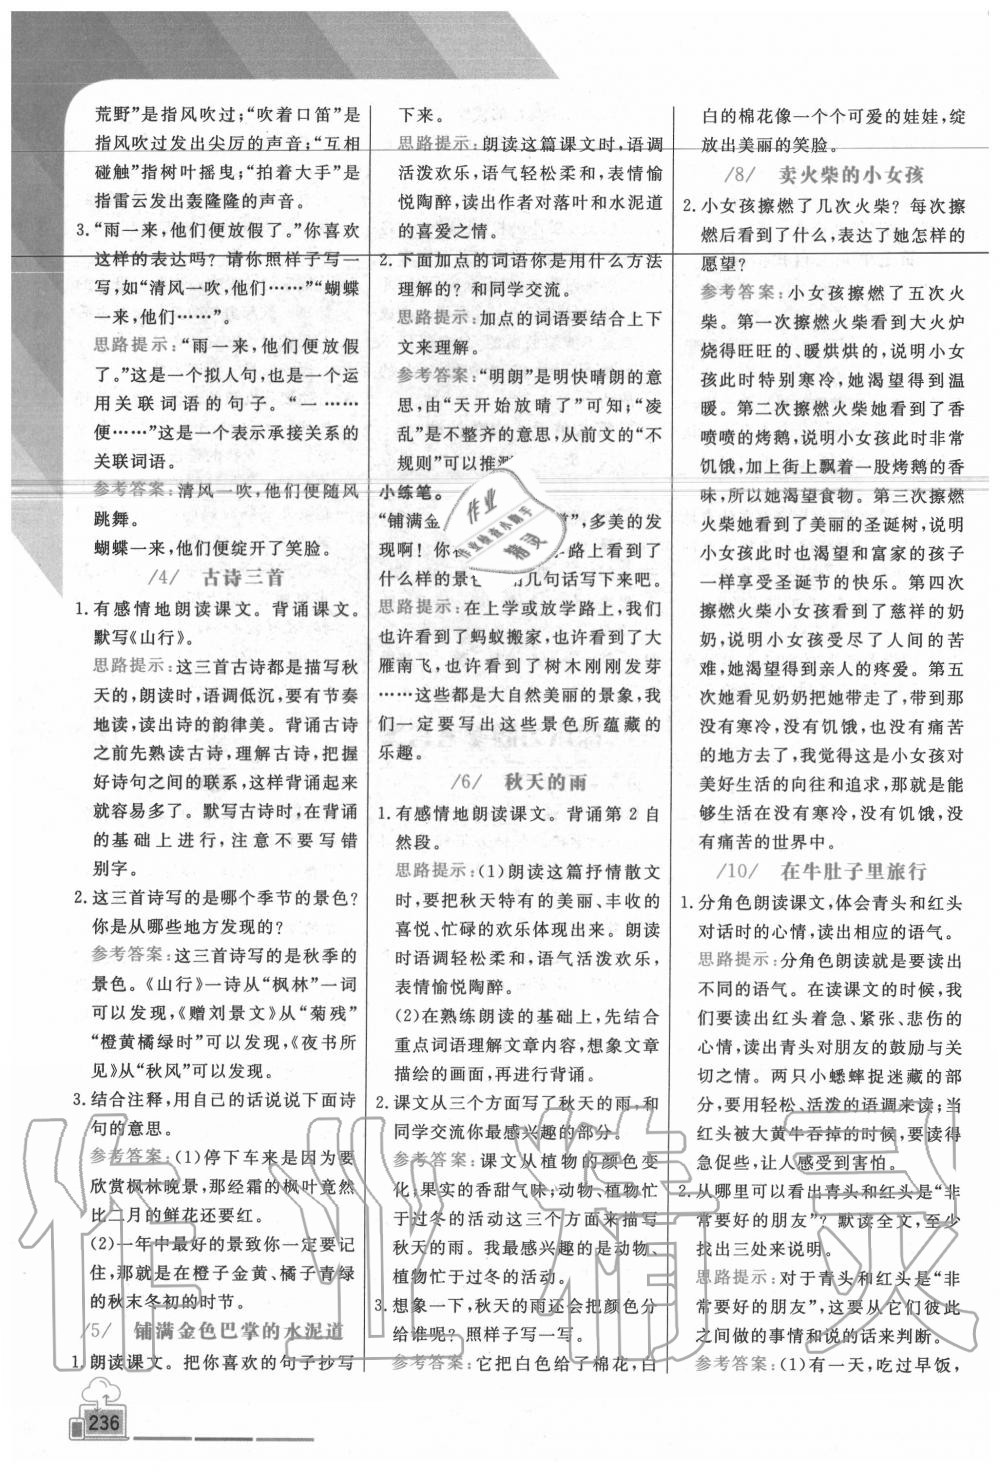 荒野”是指风吹过；“吹着口笛”是
指风吹过发出尖厉的声音；“互相
碰触”指树叶摇曳；“拍着大手”是
指雷云发出轰隆隆的声音。
3.“雨一来，他们便放假了。”你喜欢
这样的表达吗？请你照样子写一
写，如“清风一吹，他们……”“蝴蝶
一来，他们……”。
思路提示：“雨一来，他们便放假
了。”这是一个拟人句，也是一个运
用关联词语的句子。“一……
便……”这是一个表示承接关系的
关联词语。
参考答案：清风一吹，他们便随风
跳舞。
蝴蝶一来，他们便绽开了笑脸。
/4/ 古诗三首
1.有感情地朗读课文。背诵课文。
默写《山行》。
思路提示：这三首古诗都是描写秋
天的，朗读时，语调低沉，要有节奏
地读，读出诗的韵律美。背诵古诗
之前先熟读古诗，理解古诗，把握
好诗句之间的联系，这样背诵起来
就容易多了。默写古诗时，在背诵
的基础上进行，注意不要写错
别字。
2.这三首诗写的是哪个季节的景色？
你是从哪些地方发现的？
参考答案：这三首诗写的是秋季的
景色。《山行》一诗从“枫林”一词
可以发现，《赠刘景文》从“菊残”
“橙黄橘绿时”可以发现，《夜书所
见》从“秋风”可以发现。
3.结合注释，用自己的话说说下面诗
句的意思。
参考答案：（1）停下车来是因为要
欣赏枫林晚景，那经霜的枫叶竟然
比二月的鲜花还要红。
（2）一年中最好的景致你一定要记
住，那就是在橙子金黄、橘子青绿
的秋末冬初的时节。
/5/ 铺满金色巴掌的水泥道
1.朗读课文。把你喜欢的句子抄写
下来。
思路提示：朗读这篇课文时，语调
活泼欢乐，语气轻松柔和，表情愉
悦陶醉，读出作者对落叶和水泥道
的喜爱之情。
2.下面加点的词语你是用什么方法
理解的？和同学交流。
思路提示：加点的词语要结合上下
文来理解。
参考答案：“明朗”是明快晴朗的意
思，由“天开始放晴了”可知；“凌
乱”是不整齐的意思，从前文的“不
规则”可以推测
小练笔。
“铺满金 掌”，多美的发
现啊！你 学路上看到了
什么样的景色 用几句话写下来吧。
思路提示：在上学或放学路上，我们
也许看到了蚂蚁搬家，也许看到了大
雁南飞，也许看到了树木刚刚发芽
……这些都是大自然美丽的景象，我
们一定要写出这些景色所蕴藏的
乐趣。
/6/ 秋天的雨
1.有感情地朗读课文。背诵第2自
然段。
思路提示：（1）朗读这篇抒情散文
时，要把秋天特有的美丽、丰收的
喜悦、忙碌的欢乐体现出来。朗读
时语调轻松柔和，语气活泼欢乐，
表情愉悦陶醉。
（2）在熟练朗读的基础上，先结合
重点词语理解文章内容，想象文章
描绘的画面，再进行背诵。
2.课文从三个方面写了秋天的雨，和
同学交流你最感兴趣的部分。
参考答案：课文从植物的颜色变
化；果实的香甜气味；动物、植物忙
于过冬的活动这三个方面来描写
秋天的雨。我最感兴趣的是动物、
植物忙于过冬的活动。
3.想象一下，秋天的雨还会把颜色分
给谁呢？照样子写一写。
参考答案：它把白色给了棉花，白
白的棉花像一个个可爱的娃娃，绽
放出美丽的笑脸。
/8/ 卖火柴的小女孩
2.小女孩擦燃了几次火柴？每次擦
燃后看到了什么，表达了她怎样的
愿望？
参考答案：小女孩擦燃了五次火
柴。第一次擦燃火柴看到大火炉
烧得旺旺的、暖烘烘的，说明小女
孩此时特别寒冷，她渴望得到温
暖。第二次擦燃火柴她看到了香
喷喷的烤鹅，说明小女孩此时非常
饥饿，加上街上飘着一股烤鹅的香
味，所以她渴望食物。第三次擦燃
火柴她看到了美丽的圣诞树，说明
小女孩此时渴望和富家的孩子
一样享受圣诞节的快乐。第四次
擦燃火柴小女孩看到了慈祥的奶
奶，说明小女孩受尽了人间的苦
难，她渴望得到亲人的疼爱。第五
次她看见奶奶把她带走了，带到那
没有寒冷，没有饥饿，也没有痛苦
的地方去了，我觉得这是小女孩对
美好生活的向往和追求，那就是能
够生活在没有寒冷，没有饥饿，没
有痛苦的世界中。
/10/ 在牛肚子里旅行
1.分角色朗读课文，体会青头和红头
对话时的心情，读出相应的语气。
思路提示：分角色朗读就是要读出
不同的语气。在读课文的时候，我
们要读出红头着急、紧张、悲伤的
心情，读出青头对红头的鼓励与关
切之情。两只小蟋蟀捉迷藏的部
分，要用轻松、活泼的语调来读；当
红头被大黄牛吞掉的时候，要读得
急促些，让人感受到害怕。
2.从哪里可以看出青头和红头是“非
常要好的朋友”？默读全文，至少
找出三处来说明。
思路提示：对于青头和红头是“非
常要好的朋友”，这要从它们彼此之
间做的事情和说的话来判断。
参考答案：（1）有一天，吃过早饭，
236
作业
作业检查小助手
精灵
作业精灵